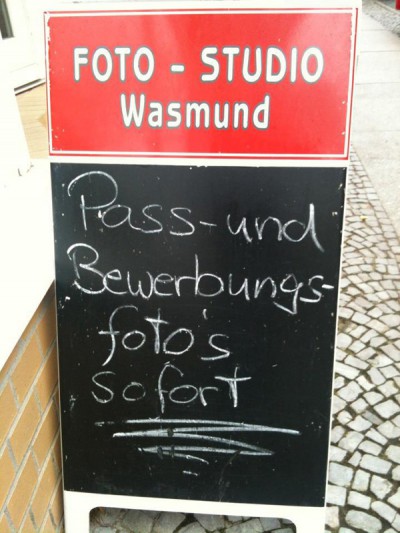 FOTO - STUDIO
Wasmund
Pass-und
Bewerbungs-
foto's
sofort